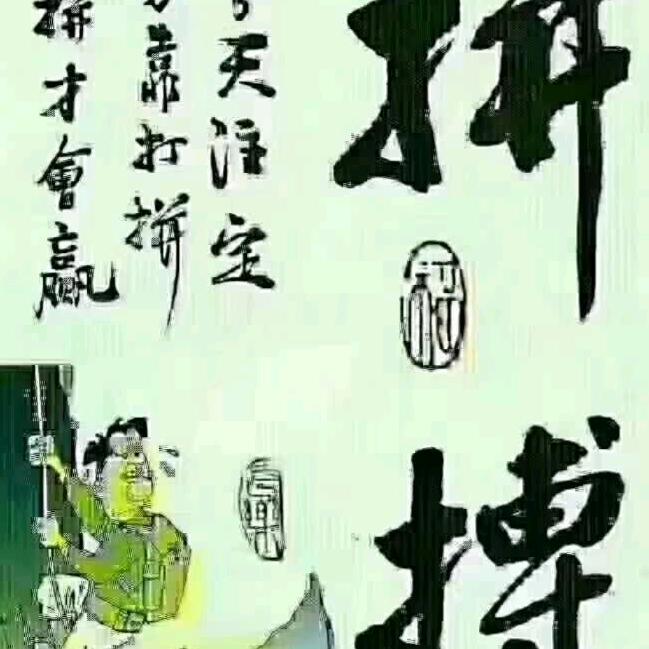 拼搏
天注定
靠打拼
拼才會贏